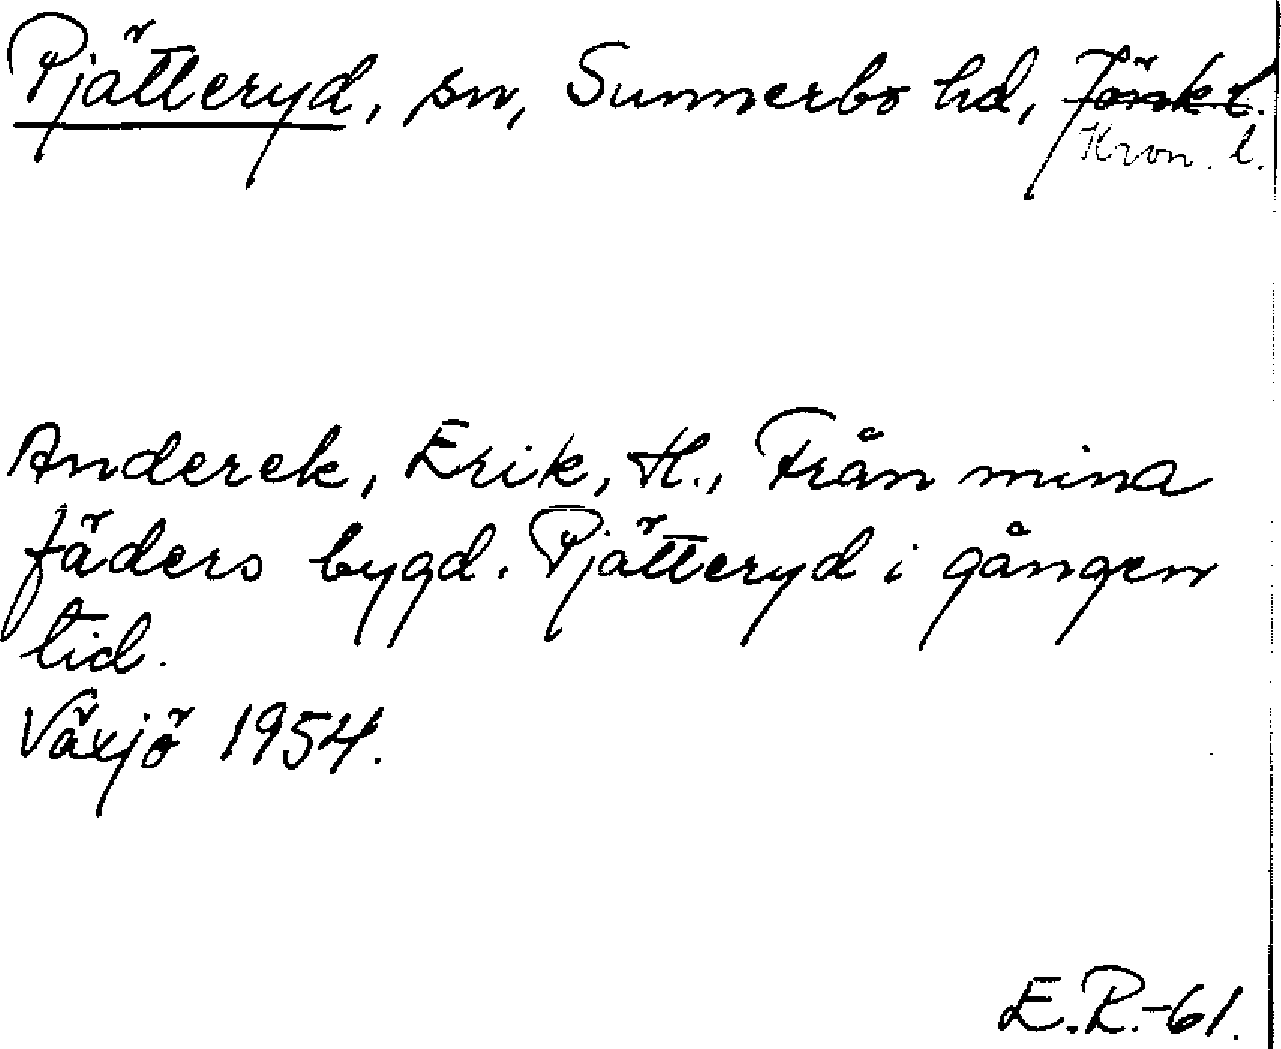 Pjätteryd, sn, Sunnerbo hd, Jönk l.
Kron. l.
Anderek, Erik, H., Från mina
fäders bygd. Pjätteryd i gången
tid.
Växjö 1954.
E.R.-61.